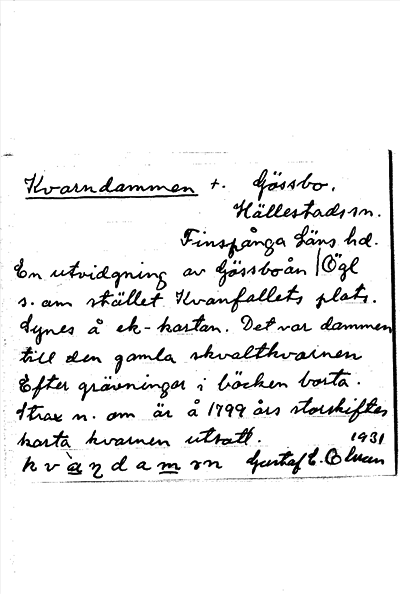 Kvarndammen +. Gössbo.
Hällestads sn.
Finspånga läns hd.
En utvidgning av Gössboån Ögl
s. om stället Kvarnfallets plats.
Synes å ek-kartan. Det var dammen
till den gamla skvaltkvarnen
Efter grävningar i bäcken borta.
Strax n. om är å 1799 års storskiftes
karta kvarnen utsatt. 1931
Gustaf E.